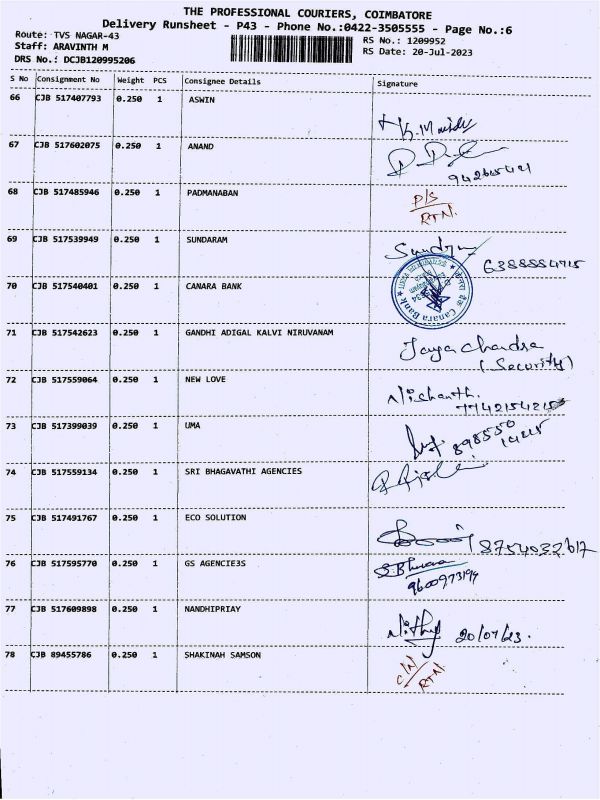 THE PROFESSIONAL COURIERS, COIMBATORE
Delivery Runsheet - P43 - Phone No.:0422-3505555 - Page No.:6
Route: TVS NAGAR-43 RS No.: 1209952
Staff: ARAVINTH M RS Date: 20-Jul-2023
DRS No.: DCJB120995206
S No Consignment No Weight PCS Consignee Details Signature
66 CJB 517407793 0.250 1 ASWIN
67 CJB 517602075 0.250 1 ANAND
68 CJB 517485946 0.250 1 PADMANABAN P/S
RTN.
69 CJB 517539949 0.250 1 SUNDARAM 6388884715
70 CJB 517540401 0.250 1 CANARA BANK Canara Bank
71 CJB 517542623 0.250 1 GANDHI ADIGAL KALVI NIRUVANAM Jaya Chandra
(Security)
72 CJB 517559064 0.250 1 NEW LOVE Nishanth.
73 CJB 517399039 0.250 1 UMA 898550
14215
74 CJB 517559134 0.250 1 SRI BHAGAVATHI AGENCIES
75 CJB 517491767 0.250 1 ECO SOLUTION 8754032617
76 CJB 517595770 0.250 1 GS AGENCIE3S
77 CJB 517609898 0.250 1 NANDHIPRIAY 20/07/23.
78 CJB 89455786 0.250 1 SHAKINAH SAMSON C/N
RTN.